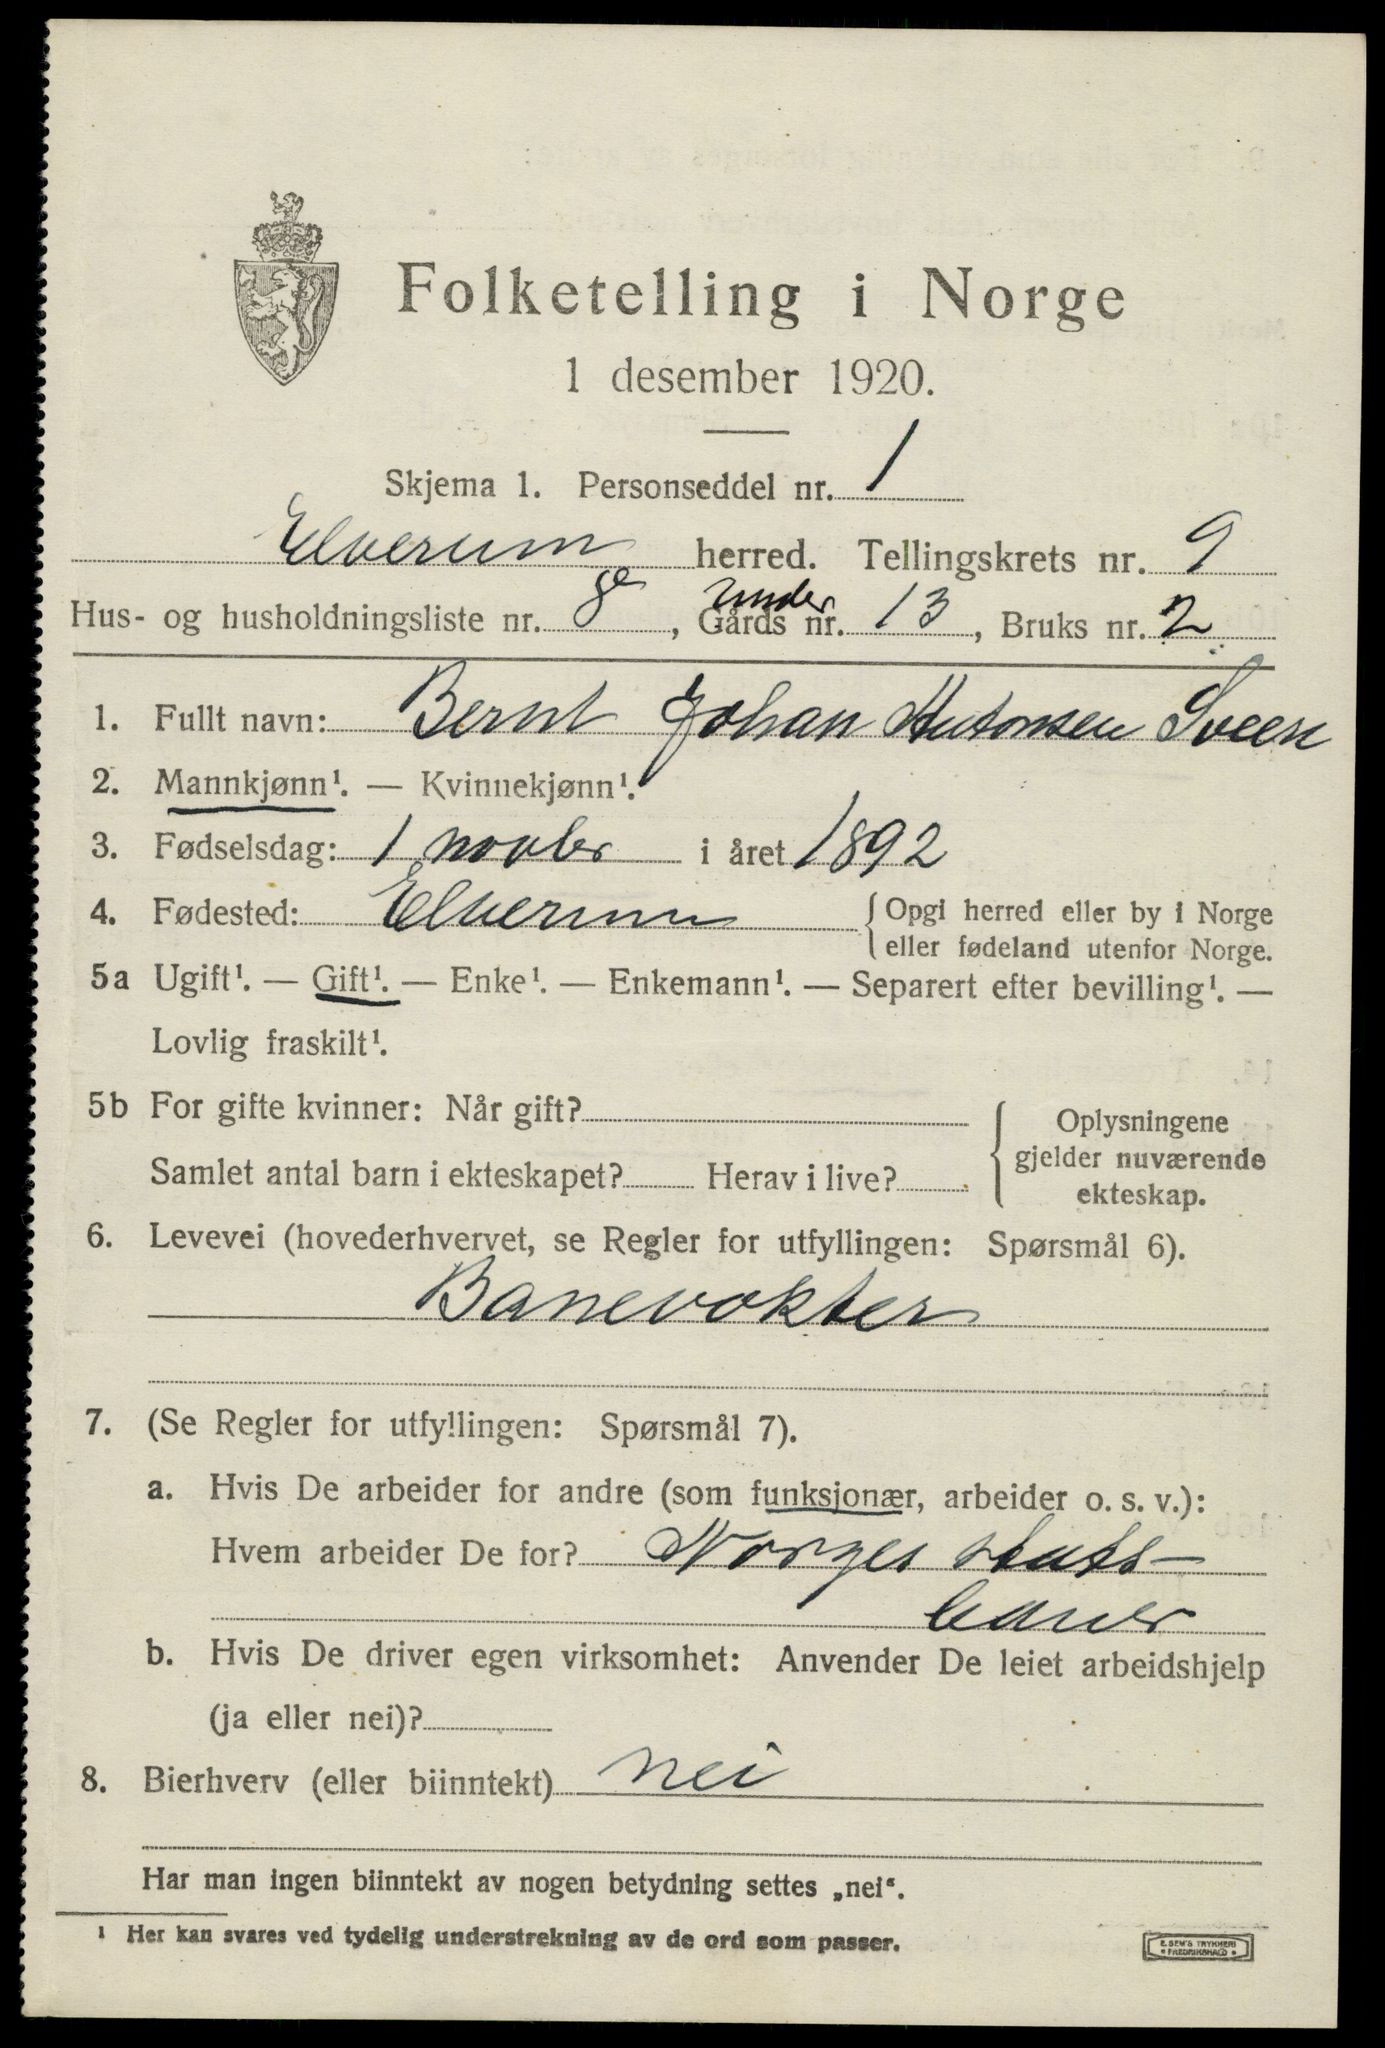 Folketelling i Norge
1 desember 1920.
Skjema 1. Personseddel nr. 1
Elverum herred. Tellingskrets nr. 9
under
Hus- og husholdningsliste nr. 8, Gårds nr. 13, Bruks nr. 2
1. Fullt navn: Bernt Johan Antonsen Sveen
2. Mannkjønn¹. — Kvinnekjønn¹.
3. Fødselsdag: 1 novbr i året 1892
4. Fødested: Elverum { Opgi herred eller by i Norge
eller fødeland utenfor Norge.
5a Ugift¹. — Gift¹. — Enke¹. — Enkemann¹. — Separert efter bevilling¹. —
Lovlig fraskilt¹.
5b For gifte kvinner: Når gift?
Samlet antal barn i ekteskapet? Herav i live?
Oplysningene
gjelder nuværende
ekteskap.
6. Levevei (hovederhvervet, se Regler for utfyllingen: Spørsmål 6).
Banevokter
7. (Se Regler for utfyllingen: Spørsmål 7).
a. Hvis De arbeider for andre (som funksjonær, arbeider o. s. v.):
Hvem arbeider De for? Norges stats-
baner
b. Hvis De driver egen virksomhet: Anvender De leiet arbeidshjelp
(ja eller nei)?
8. Bierhverv (eller biinntekt) nei
Har man ingen biinntekt av nogen betydning settes „nei“.
¹ Her kan svares ved tydelig understrekning av de ord som passer.
E. SEM'S TRYKKERI
FREDRIKSHALD